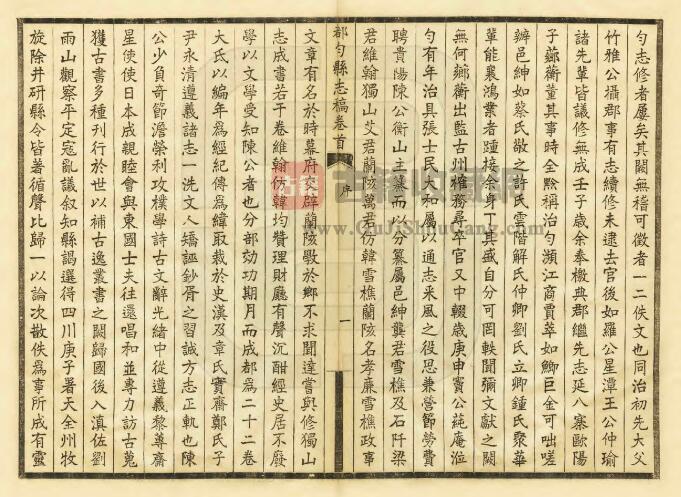 勻志修者屢矣其闕無稽可徵者一二佚文也同治初先大父
竹雅公攝郡事有志續修未逮去官後如羅公星潭王公仲瑜
諸先輩皆議修無成壬子歲余奉檄典郡繼先志延八寨歐陽
子薌蘅董其事時全黔稱治勻瀕江商賈萃如鯽巨金可咄嗟
辦邑紳如蔡氏敬之許氏雲階解氏仲卿劉氏立卿鍾氏聚華
輩能襄鴻業者踵接余身丁其盛自分可罔軼聞彌文獻之闕
無何薌蘅出監古州榷務尋卒官又中輟歲庚申竇公蒓庵涖
勻有年治具張士民大和屬以通志采風之役思兼營節勞費
聘貴陽陳公衡山主纂而以分纂屬邑紳龔君雪樵及石阡梁
君維翰獨山艾君蘭陔萬君仿韓雪樵蘭陔名孝廉雪樵政事
都勻縣志稿卷首
序
一
文章有名於時幕府交辟蘭陔斆於鄉不求聞達嘗與修獨山
志成書若干卷維翰仿韓均贊理財廳有聲沉酣經史居不廢
學以文學受知陳公者也分部効功期月而成都為二十二卷
大氐以編年為經紀傳為緯取裁於史漢及章氏實齋鄭氏子
尹永清遵義諸志一洗文人矯誣鈔胥之習誠方志正軌也陳
公少負奇節澹榮利攻樸學詩古文辭光緒中從遵義黎尊齋
星使使日本成親睦會與東國士夫往還唱和並專力訪古蒐
獲古書多種刊行於世以補古逸叢書之闕歸國後入滇佐劉
雨山觀察平定寇亂議叙知縣謁選得四川庚子署天全州牧
旋除井研縣令皆著循聲比歸一以論次散佚為事所成有靈
www.GuJiShuGang.com